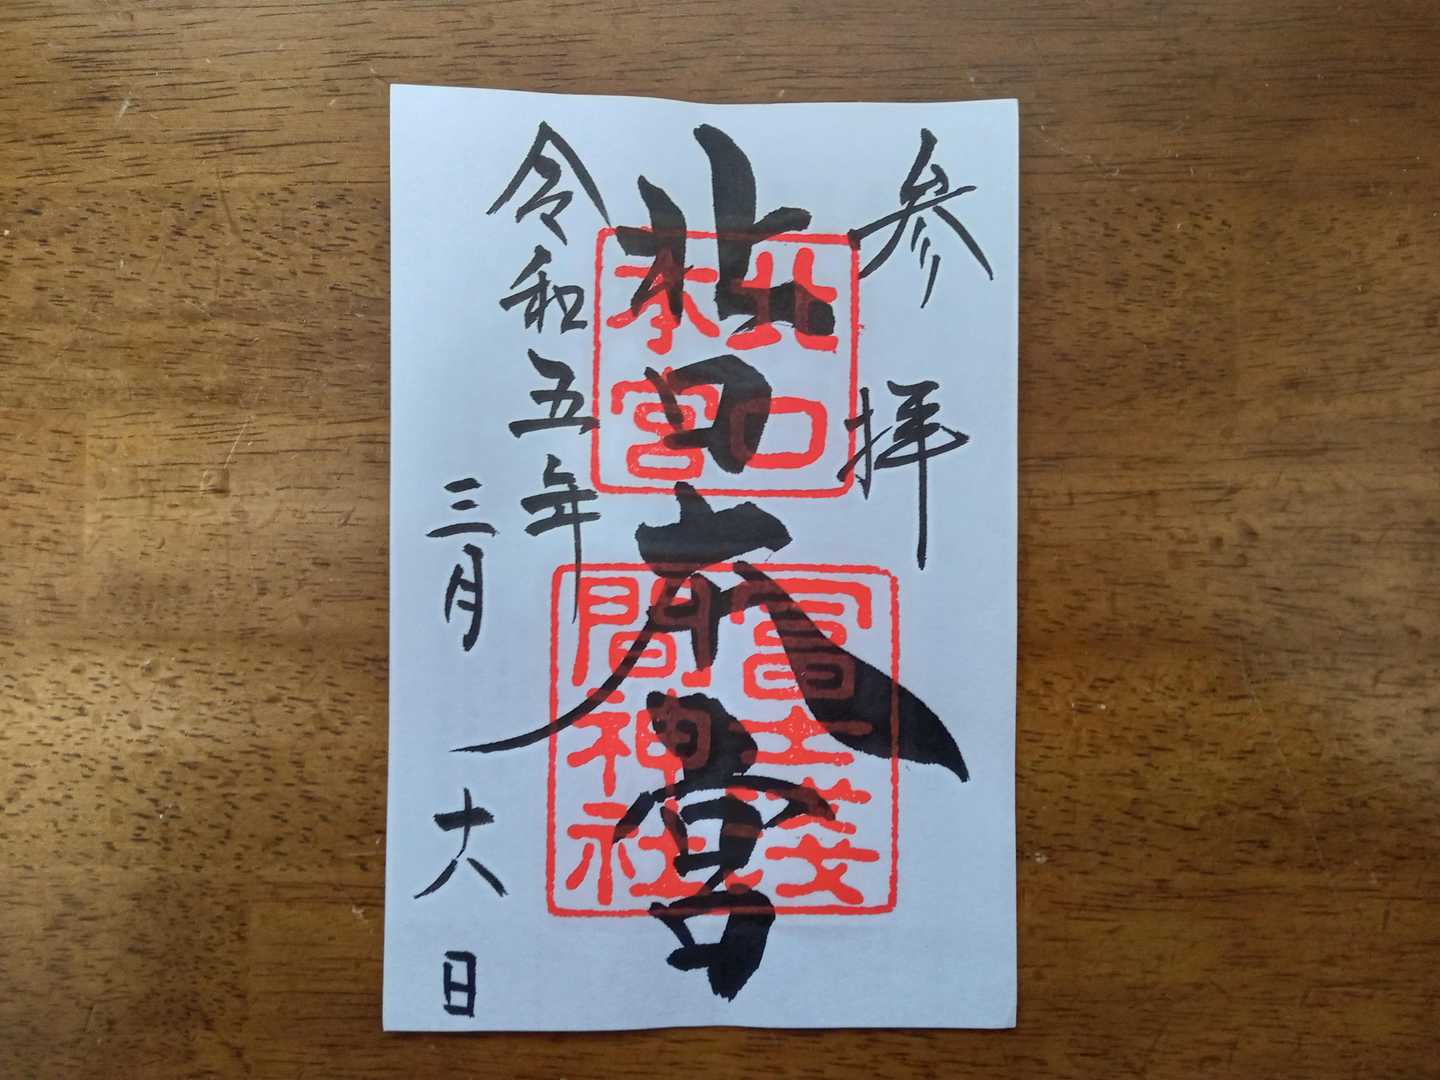 参拝
北口本宮
北口
本宮
冨士浅
間神社
令和五年
三月十八日